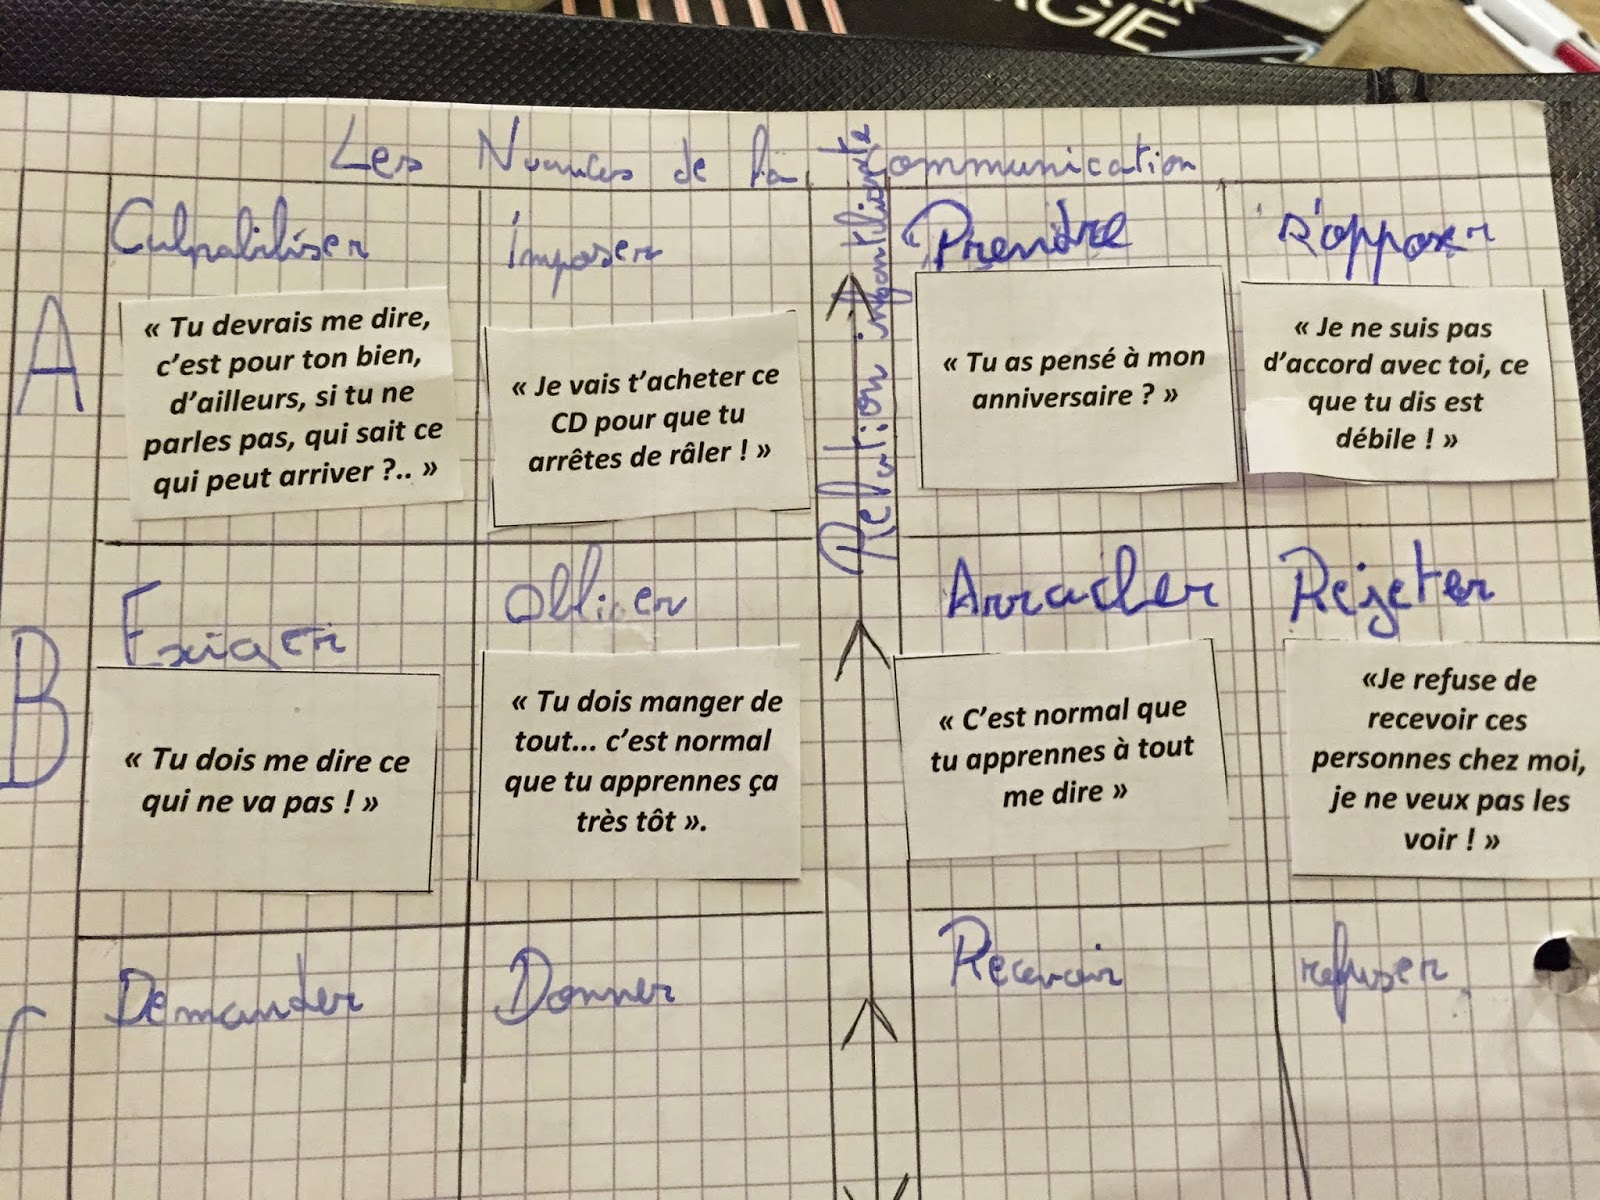 GIE
Les Nuances de la Communication
Relation infantilisante
A
Culpabiliser
« Tu devrais me dire,
c’est pour ton bien,
d’ailleurs, si tu ne
parles pas, qui sait ce
qui peut arriver ?.. »
imposer
« Je vais t’acheter ce
CD pour que tu
arrêtes de râler ! »
Prendre
« Tu as pensé à mon
anniversaire ? »
s'opposer
« Je ne suis pas
d’accord avec toi, ce
que tu dis est
débile ! »
B
Exiger
« Tu dois me dire ce
qui ne va pas ! »
Obliger
« Tu dois manger de
tout... c’est normal
que tu apprennes ça
très tôt ».
Arracher
« C’est normal que
tu apprennes à tout
me dire »
Rejeter
«Je refuse de
recevoir ces
personnes chez moi,
je ne veux pas les
voir ! »
Demander
Donner
Recevoir
refuser